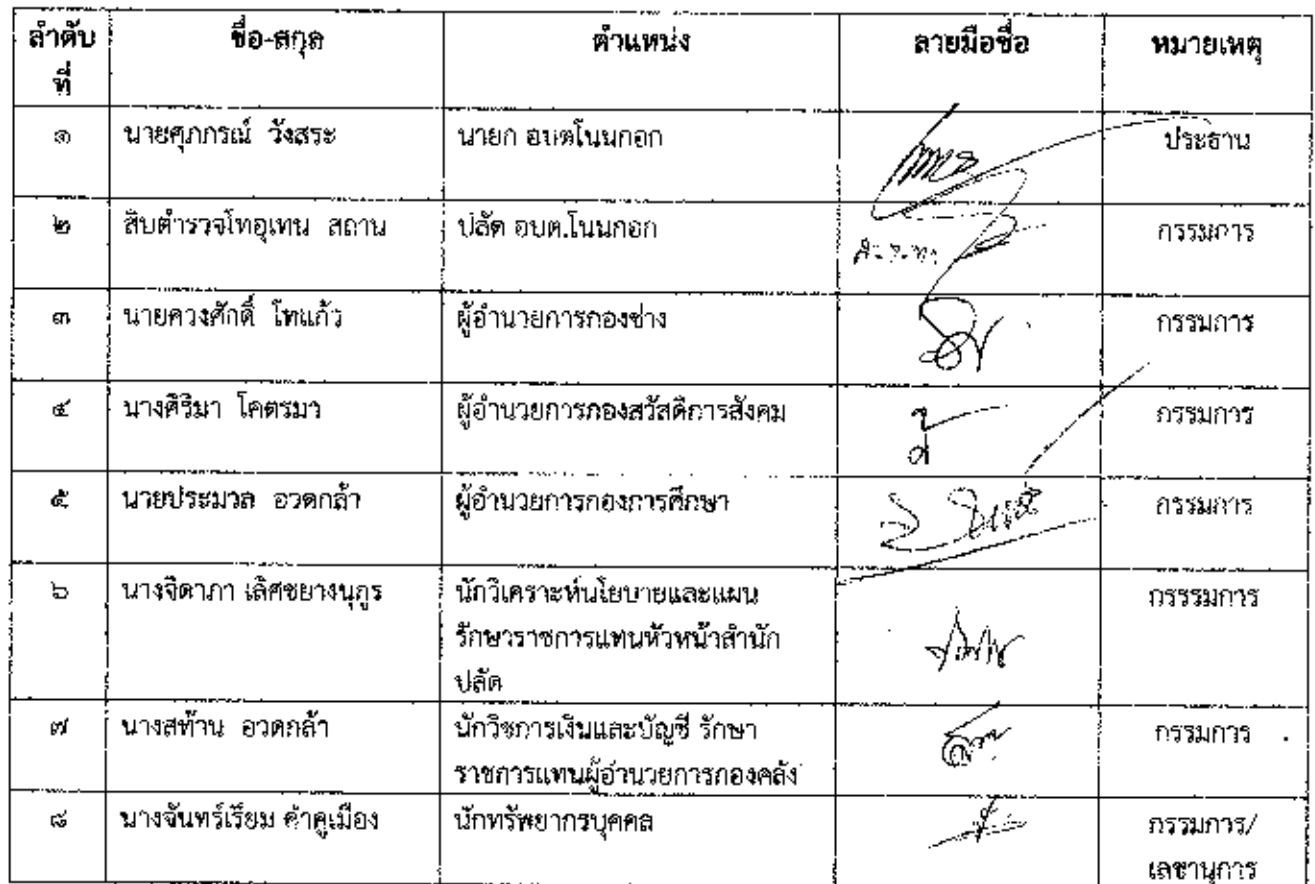 ลำดับที่ ชื่อ-สกุล ตำแหน่ง ลายมือชื่อ หมายเหตุ
๑ นายศุภกรณ์ วังสระ นายก อบตโนนกอก ประธาน
๒ สิบตำรวจโทอุเทน สถาน ปลัด อบต.โนนกอก กรรมการ
๓ นายดวงศักดิ์ โทแก้ว ผู้อำนวยการกองช่าง กรรมการ
๔ นางศิริมา โคตรมา ผู้อำนวยการกองสวัสดิการสังคม กรรมการ
๕ นายประมวล อวดกล้า ผู้อำนวยการกองการศึกษา กรรมการ
๖ นางจิดาภา เลิศชยางนุกูร นักวิเคราะห์นโยบายและแผน กรรรมการ
รักษาราชการแทนหัวหน้าสำนัก
ปลัด
๗ นางสท้าน อวดกล้า นักวิชการเงินและบัญชี รักษา กรรมการ
ราชการแทนผู้อำนวยการกองคลัง
๘ นางจันทร์เรียม ค้าคูเมือง นักทรัพยากรบุคคล กรรมการ/
เลขานุการ